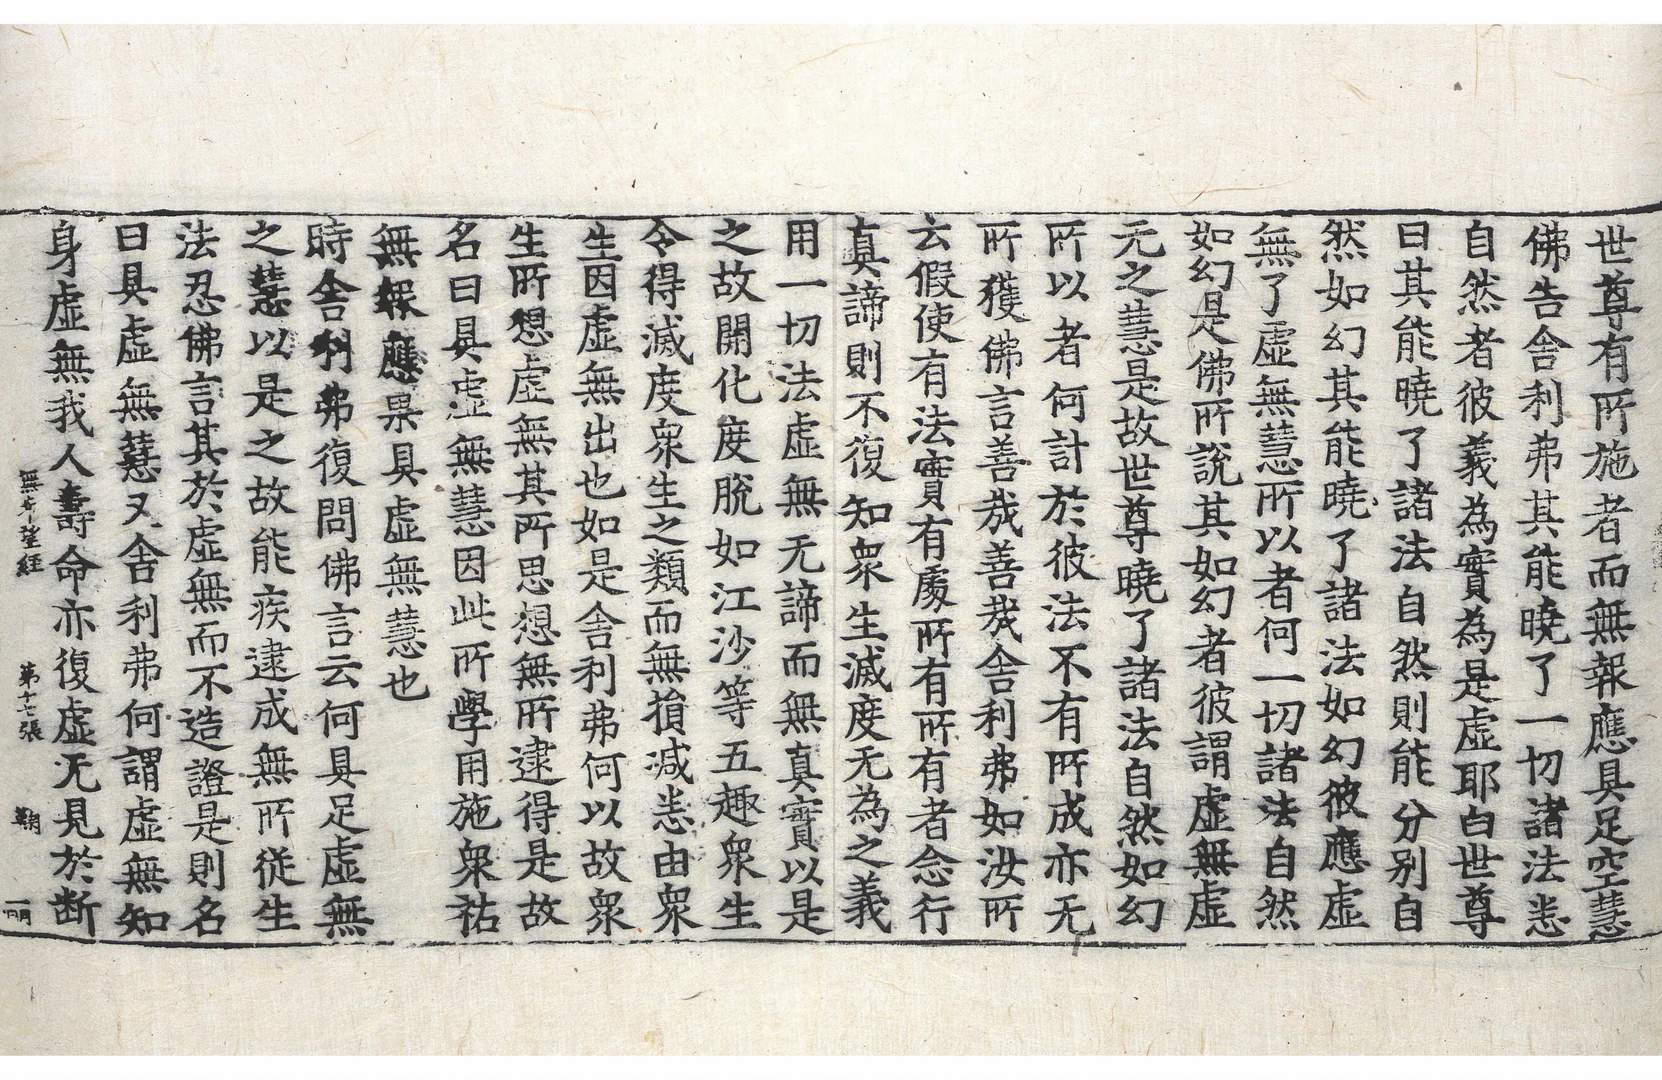 世尊有所施者而無報應具足空慧
佛告舍利弗其能曉了一切諸法悉
自然者彼義為實為是虛耶白世尊
曰其能曉了諸法自然則能分別自
然如幻其能曉了諸法如幻彼應虛
無了虛無慧所以者何一切諸法自然
如幻是佛所說其如幻者彼謂虛無虛
无之慧是故世尊曉了諸法自然如幻
所以者何計於彼法不有所成亦无
所獲佛言善哉善哉舍利弗如汝所
云假使有法實有處所有所有者念行
真諦則不復知衆生滅度无為之義
用一切法虛無无諦而無真實以是
之故開化度脫如江沙等五趣衆生
令得滅度衆生之類而無損減悉由衆
生因虛無出也如是舍利弗何以故衆
生所想虛無其所思想無所逮得是故
名曰具虛無慧因此所學用施衆祐
無報應果具虛無慧也
時舍利弗復問佛言云何具足虛無
之慧以是之故能疾逮成無所從生
法忍佛言其於虛無而不造證是則名
曰具虛無慧又舍利弗何謂虛無知
身虛無我人壽命亦復虛无見於断
無希望經 第十七張 鞠